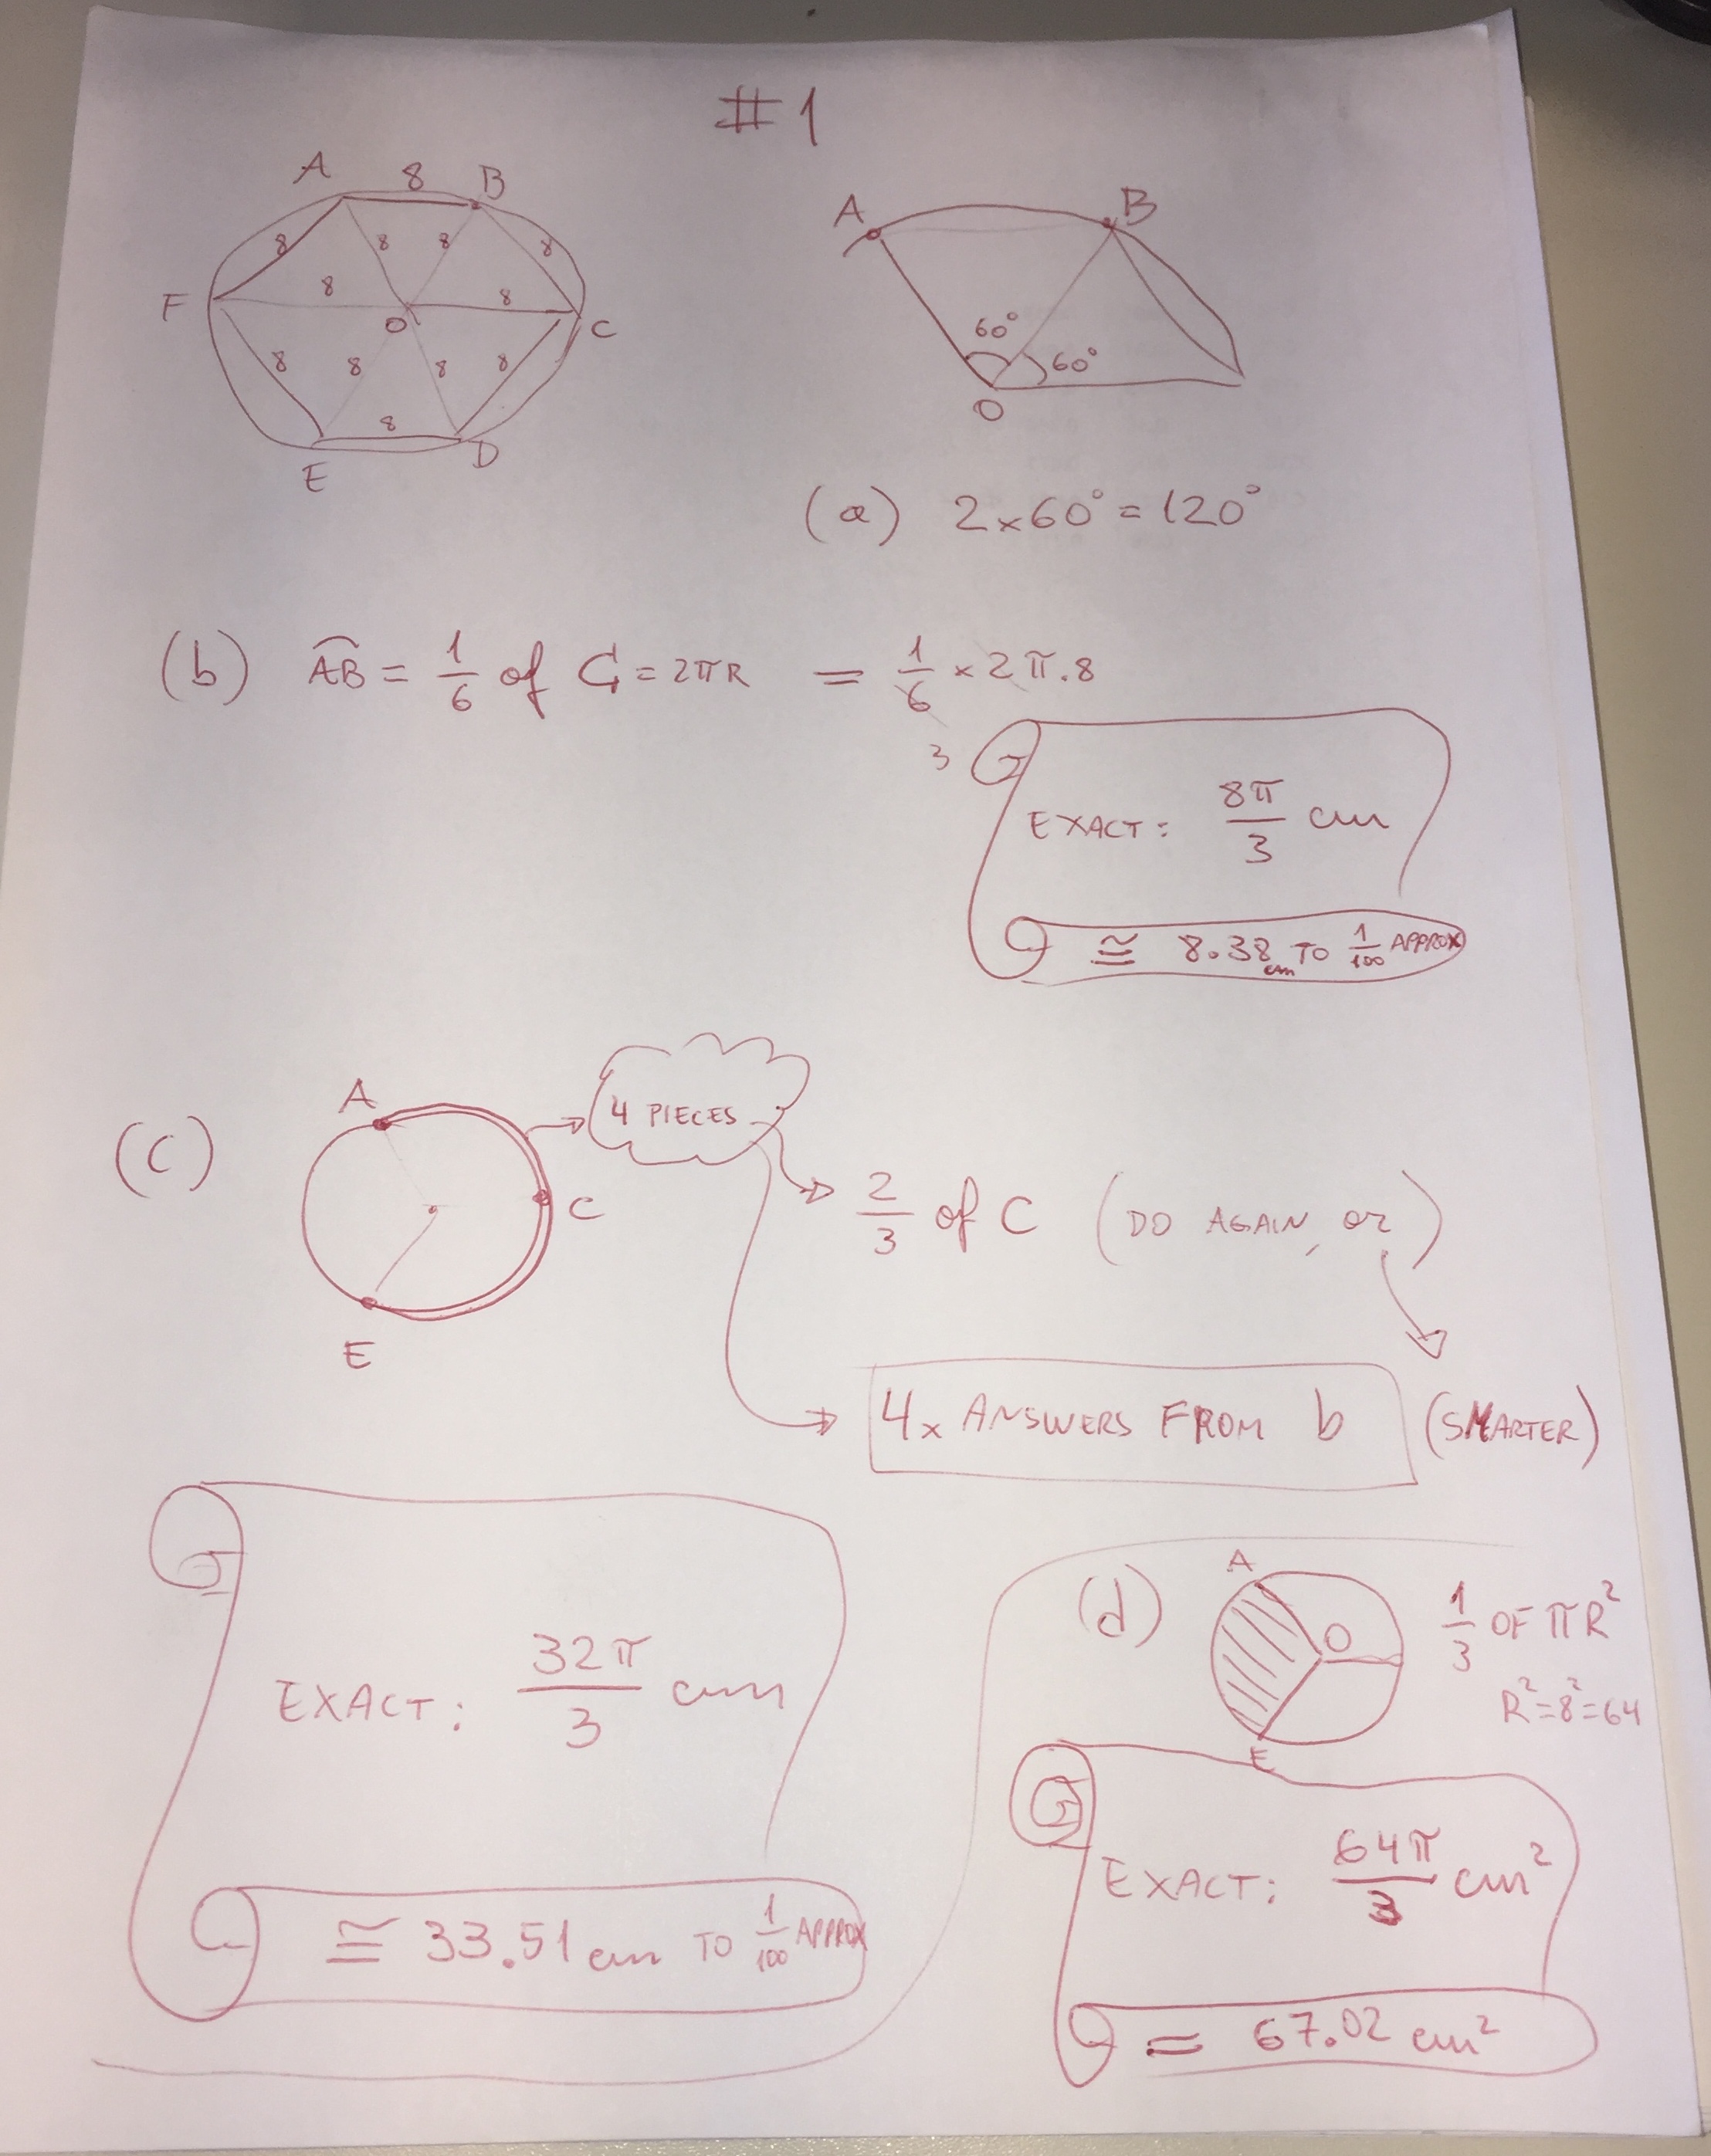 #1
A 8 B
8 8 8 8
F 8 8
O C
8 8 8 8
8
E D
A B
60° 60°
O
(a) 2×60°=120°
(b) AB = 1/6 of C = 2πR = 1/6 × 2π.8
3
EXACT: 8π/3 cm
≅ 8.38 cm TO 1/100 APPROX
(c) A
C
E
4 PIECES
2/3 of C (DO AGAIN, or)
4x ANSWERS FROM b (SMARTER)
EXACT: 32π/3 cm
≅ 33.51 cm TO 1/100 APPROX
(d) A
O
E
1/3 OF πR²
R²=8²=64
EXACT: 64π/3 cm²
= 67.02 cm²